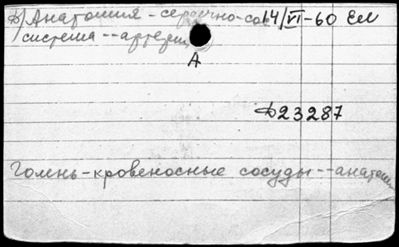 Анатомия - сердечно-сос 14/VI-60
система -- артерии
А
Ф23287
Голень - кровеносные сосуды -- анатом